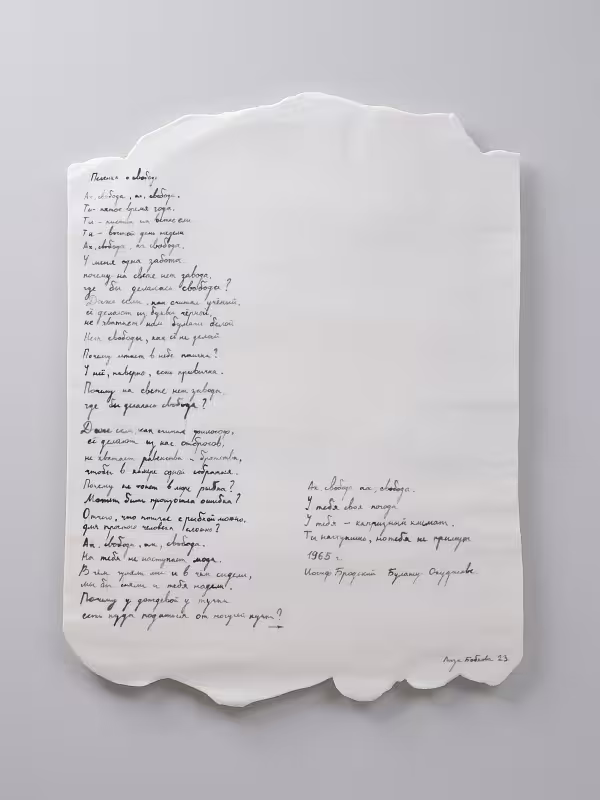 Песенка о свободе
Ах, свобода, ах, свобода.
Ты - пятое время года.
Ты - листик на ветке ели.
Ты - восьмой день недели
Ах, свобода, ах свобода.
У меня одна забота:
почему на свете нет завода,
где бы делалась свобода?
Даже если, как считал учёный,
её делают из буквы чёрной,
не хватает нам бумаги белой
Нет свободы, как её не делай
Почему летает в небе птичка?
У неё, наверно, есть привычка.
Почему на свете нет завода,
где бы делалась свобода?
Даже если, как считал философ,
её делают из нас отбросов,
не хватает равенства и братства,
чтобы в камере одной собраться.
Почему не тонет в море рыбка?
Может быть произошла ошибка?
Отчего, что птичке с рыбкой можно,
для простого человека сложно?
Ах, свобода, ах, свобода.
На тебя не наступает мода.
В чём гуляли мы и в чём сидели,
мы бы сняли и тебя надели.
Почему у дождевой у тучки
есть куда податься от могучей кучки?
Ах, свобода, ах, свобода.
У тебя своя погода
У тебя - капризный климат.
Ты наступишь, но тебя не примут
1965 г.
Иосиф Бродский Булату Окуджаве
Лиза Бобкова 23